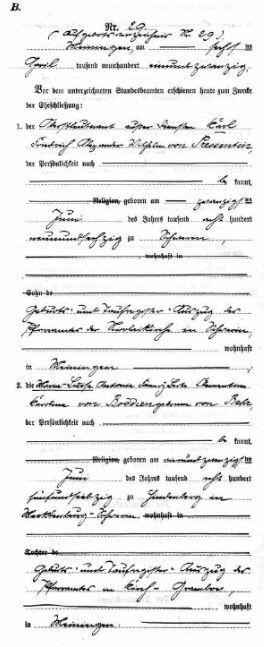 B.
Nr. 29
(Aufgebotsverzeichnis N. 29)
Meiningen, am sechsten
April tausend neunhundert neunundzwanzig.
Vor dem unterzeichneten Standesbeamten erschienen heute zum Zwecke
der Eheschließung:
1. der Oberstleutnant außer Diensten Karl
Friedrich Alexander Wilhelm von
der Persönlichkeit nach
be kannt,
Religion, geboren am zwanzigsten
Juni des Jahres tausend acht hundert
neunundsechzig zu Schwerin,
wohnhaft in
Sohn de
Geburts- und Taufregister-Auszug des
Pfarramtes der in Schwerin,
wohnhaft
in Meiningen;
2. die
Karoline von geborene von
der Persönlichkeit nach
be kannt,
Religion, geboren am
Juni des Jahres tausend acht hundert
fünfundsiebzig zu in
Mecklenburg-Schwerin, wohnhaft in
Tochter de
Geburts- und Taufregister-Auszug des
Pfarramtes in Kirch-Grambow,
wohnhaft
in Meiningen.